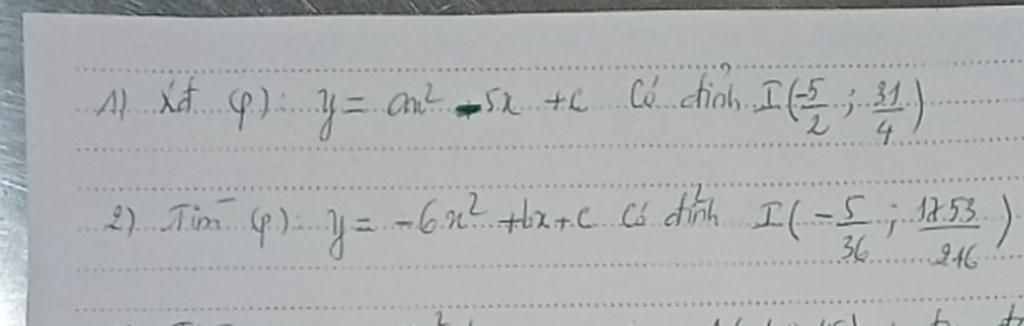 1) Xđ (φ): y = ax² - 5x + c Có đỉnh I(-5/2 ; 31/4)
2) Tìm (φ): y = -6x² + bx + c Có đỉnh I(-5/36 ; 1753/216)